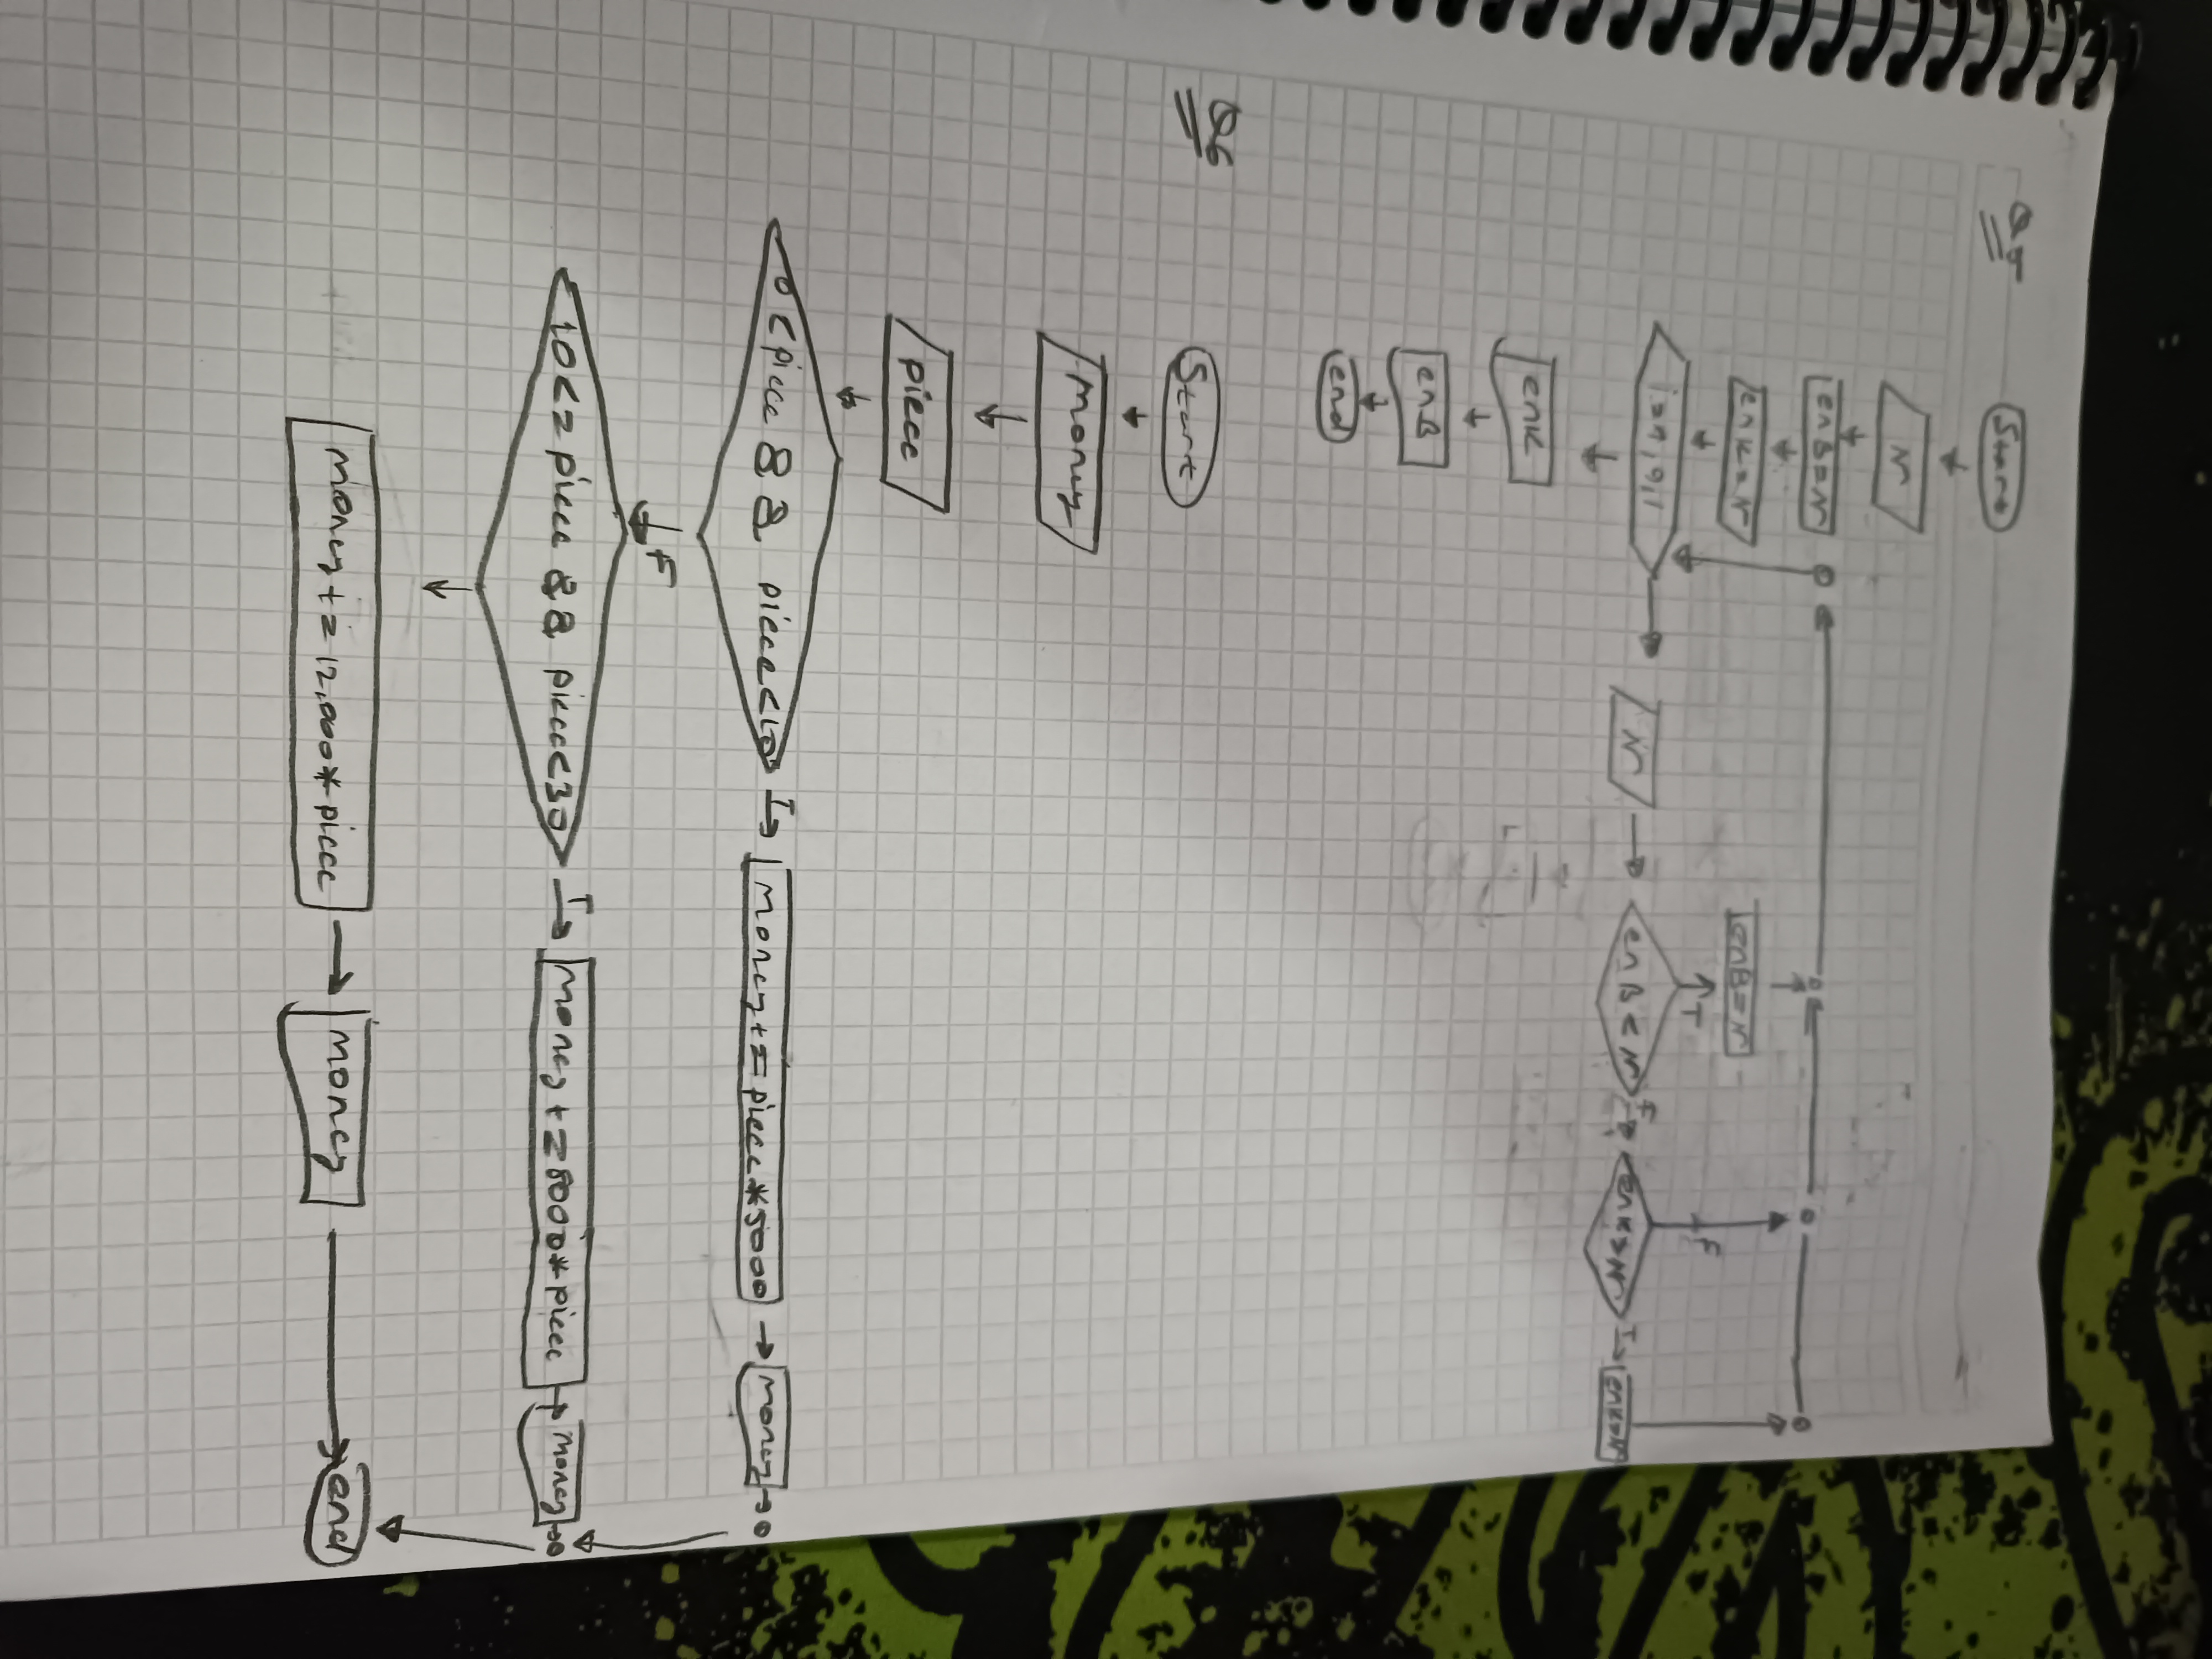 Start
N
enB=N
enK=N
i=1,9,1
N
enB<N
T
enB=N
F
enK>N
F
T
enK=N
enK
enB
end
Q6
Start
money
piece
0<piece && piece<10
T
money+=piece*5000
money
F
10<=piece && piece<30
T
money+=8000*piece
money
money+=12,000*piece
money
end